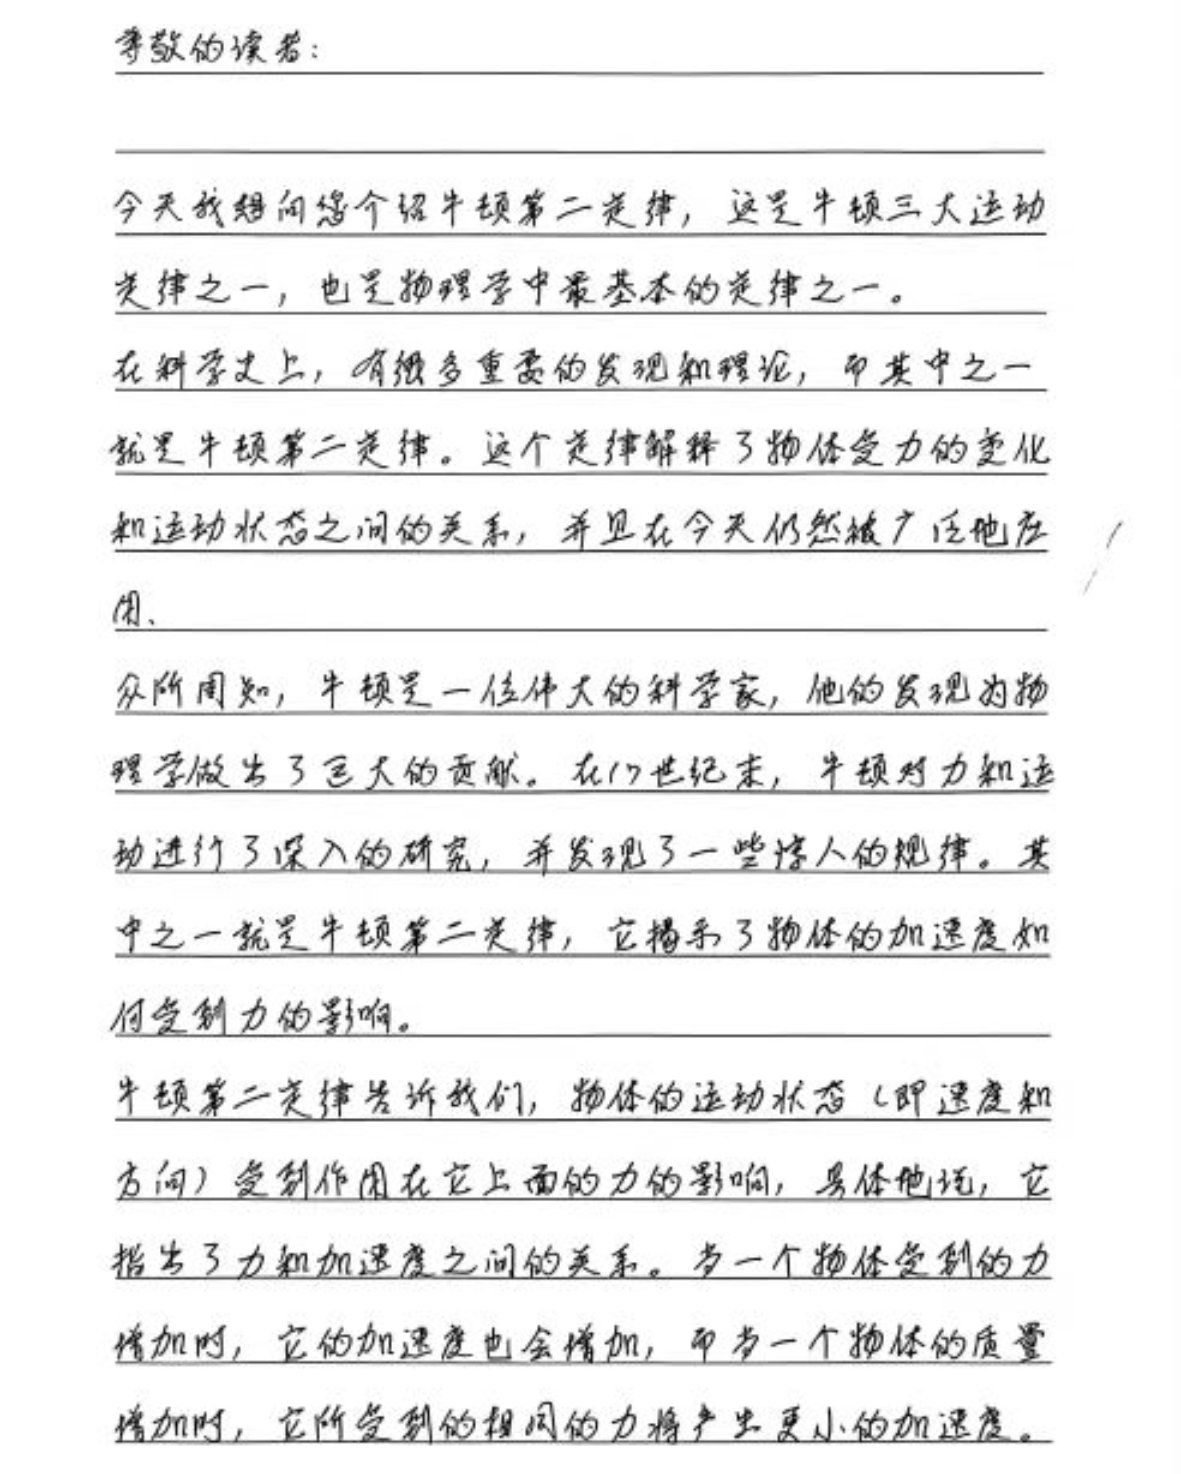 尊敬的读者：
今天我想向您介绍牛顿第二定律，这是牛顿三大运动
定律之一，也是物理学中最基本的定律之一。
在科学史上，有很多重要的发现和理论，而其中之一
就是牛顿第二定律。这个定律解释了物体受力的变化
和运动状态之间的关系，并且在今天仍然被广泛地应
用、
众所周知，牛顿是一位伟大的科学家，他的发现为物
理学做出了巨大的贡献。在17世纪末，牛顿对力和运
动进行了深入的研究，并发现了一些惊人的规律。其
中之一就是牛顿第二定律，它揭示了物体的加速度如
何受到力的影响。
牛顿第二定律告诉我们，物体的运动状态（即速度和
方向）受到作用在它上面的力的影响，具体地说，它
指出了力和加速度之间的关系。当一个物体受到的力
增加时，它的加速度也会增加，而当一个物体的质量
增加时，它所受到的相同的力将产生更小的加速度。